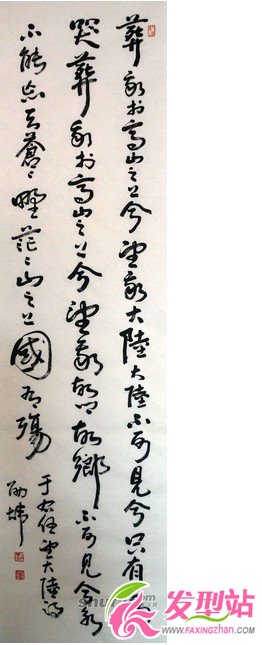 葬我於高山之上兮望我大陸大陸不可見兮只有
哭葬我於高山之上兮望我故鄉故鄉不可見兮永
不能忘天蒼〻野茫〻山之上國有殤
于右任望大陸詩
发型站
WWW.FAXINGZHAN.COM